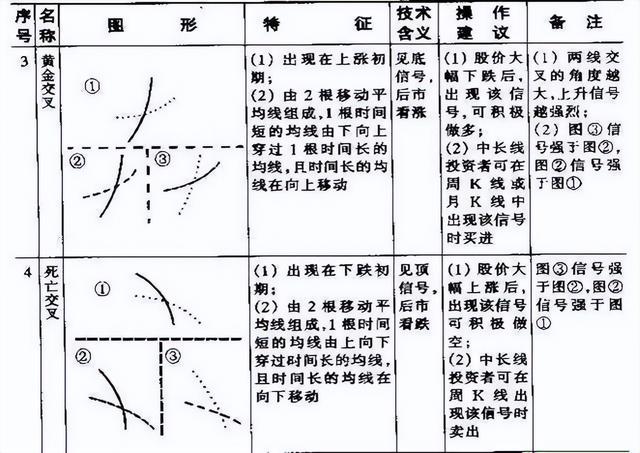 序号 名称 图形 特征 技术含义 操作建议 备注
3
黄金交叉
①
②
③
(1) 出现在上涨初
期;
(2) 由2根移动平
均线组成,1根时间
短的均线由下向上
穿过1根时间长的
均线,且时间长的均
线在向上移动
见底
信号,
后市
看涨
(1) 股价大
幅下跌后,
出现该信
号,可积极
做多;
(2) 中长线
投资者可在
周K线或
月K线中
出现该信号
时买进
(1) 两线交
叉的角度越
大,上升信号
越强烈;
(2) 图③信
号强于图②,
图②信号强
于图①
4
死亡交叉
①
②
③
(1) 出现在下跌初
期;
(2) 由2根移动平
均线组成,1根时间
短的均线由上向下
穿过时间长的均线,
且时间长的均线在
向下移动
见顶
信号,
后市
看跌
(1) 股价大
幅上涨后,
出现该信号
可积极做
空;
(2) 中长线
投资者可在
周K线出
现该信号时
卖出
图③信号强
于图②,图②
信号强于图
①